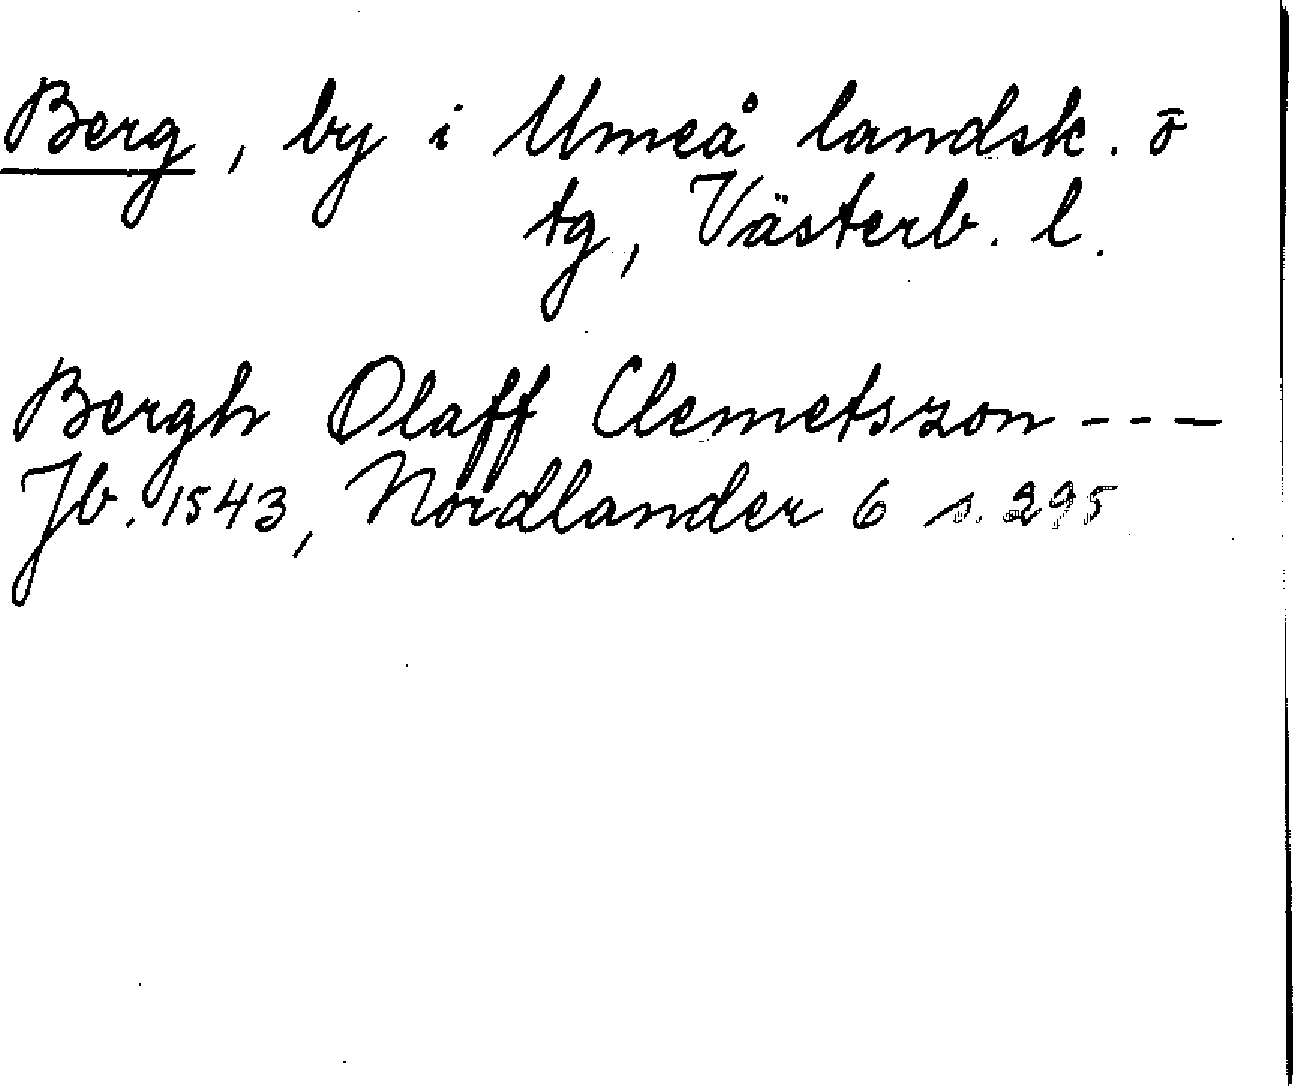 Berg, by i Umeå landsk. o
tg, Västerb. l.
Bergh Olaff Clemetszon ---
Jb. 1543, Nordlander 6 s. 295